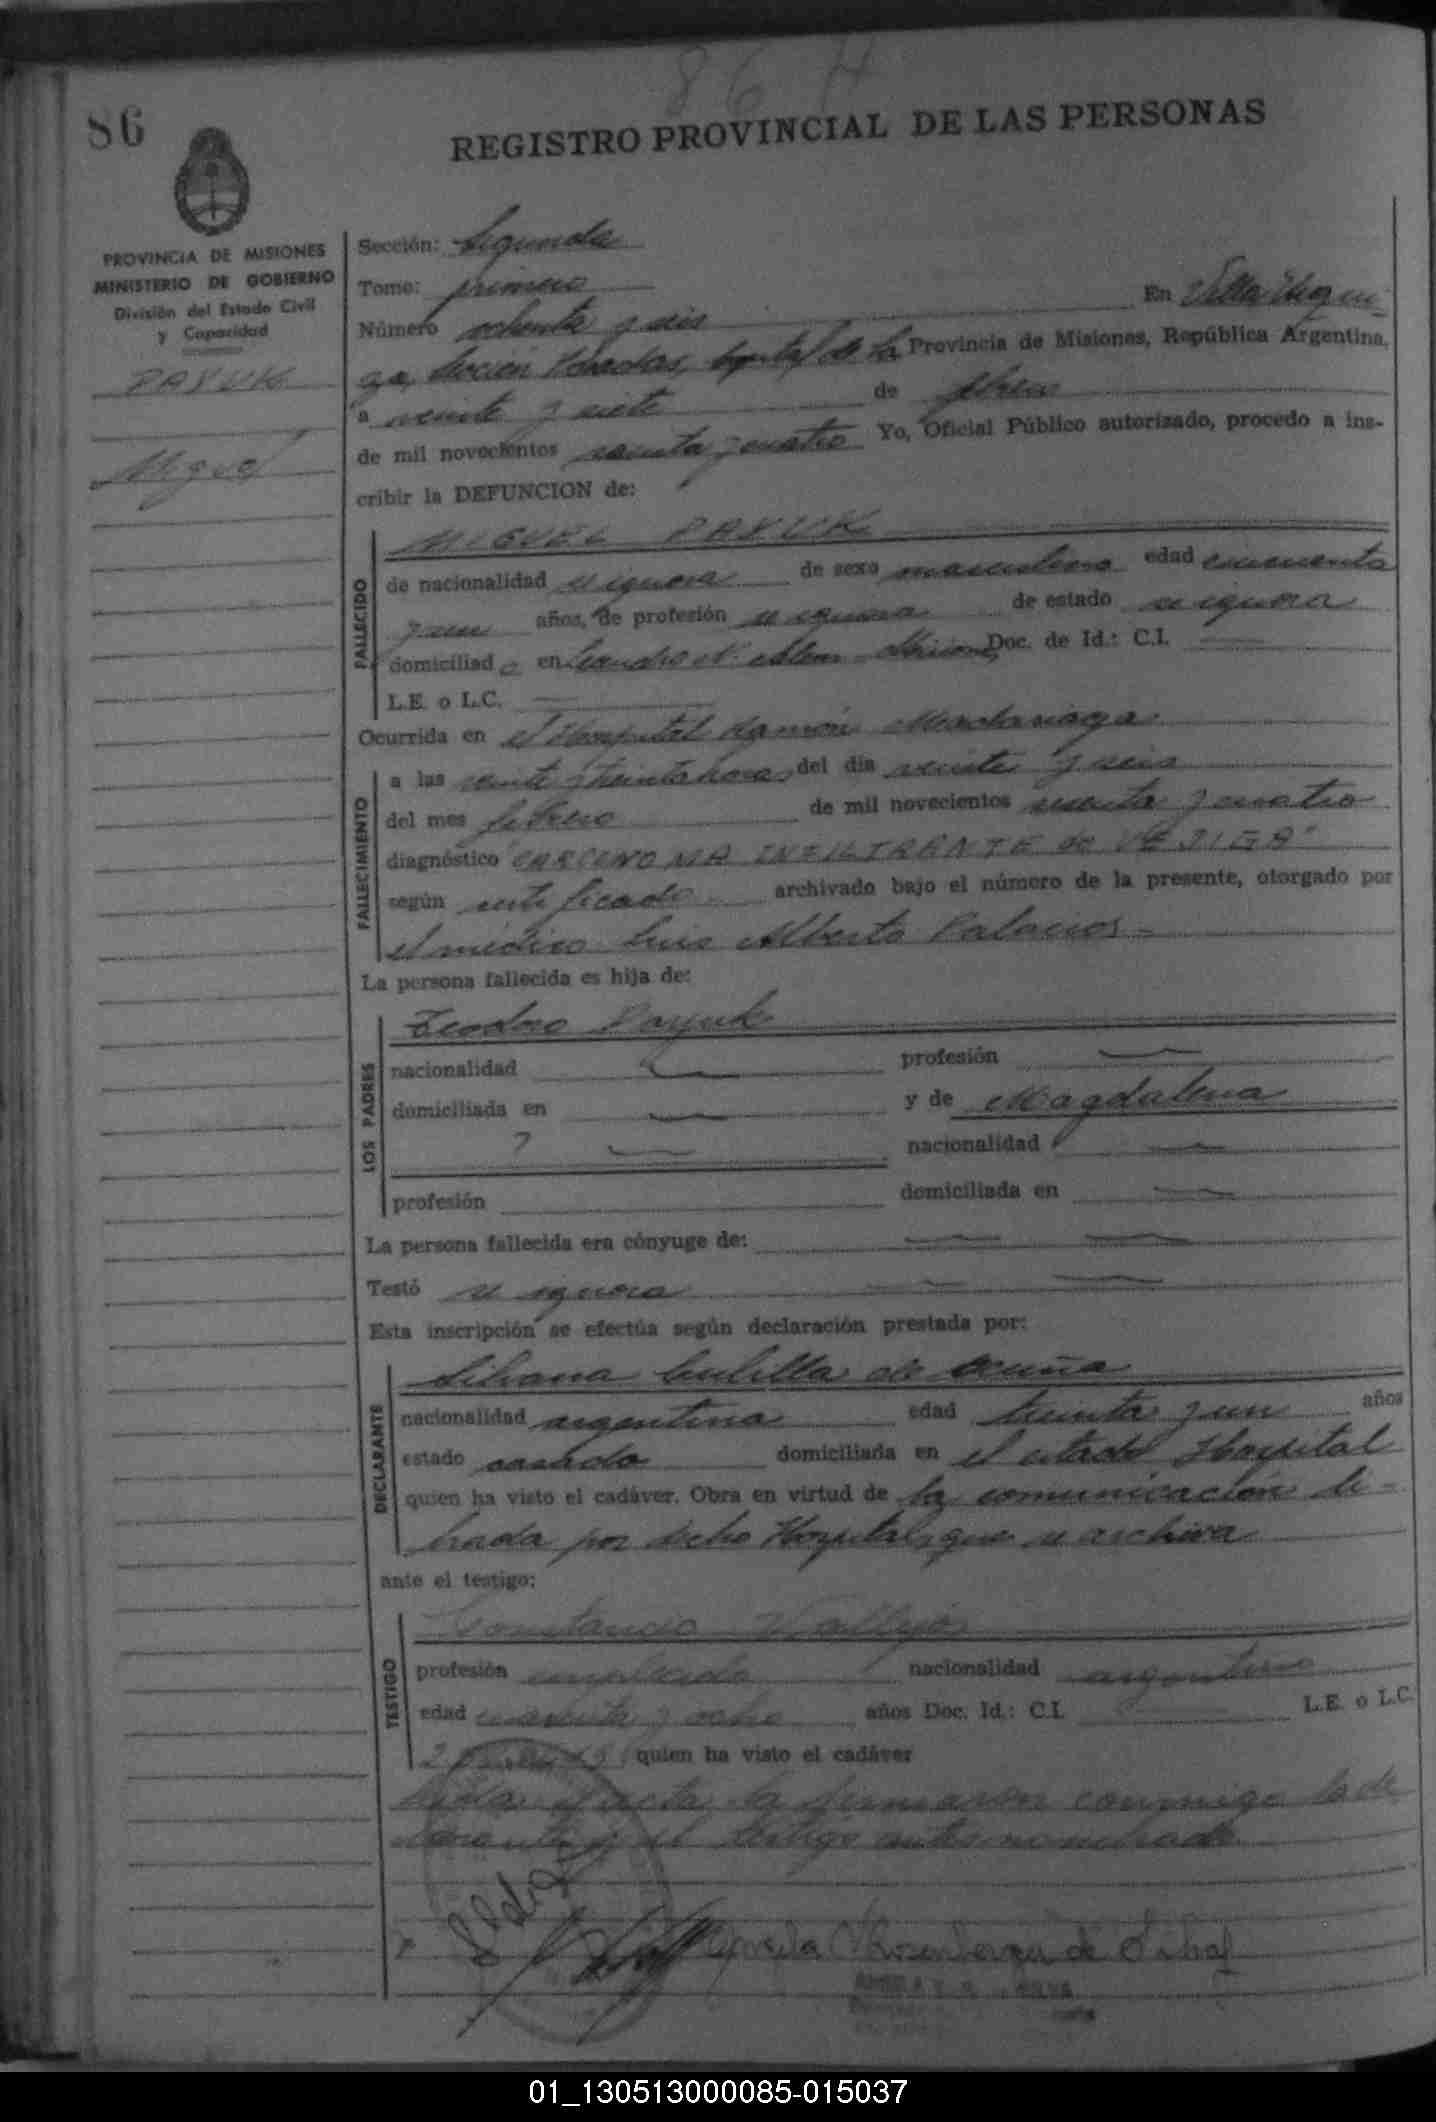 86 H
86
REGISTRO PROVINCIAL DE LAS PERSONAS
PROVINCIA DE MISIONES
MINISTERIO DE GOBIERNO
División del Estado Civil
y Capacidad
PAYUK
Miguel
Sección: Segunda
Tomo: primero
Número ochenta y seis En Villa Urqui-
za, Sección Posadas, Capital de la Provincia de Misiones, República Argentina,
a veinte y siete de febrero
de mil novecientos setenta y cuatro Yo, Oficial Público autorizado, procedo a ins-
cribir la DEFUNCION de:
FALLECIDO
MIGUEL PAYUK
de nacionalidad se ignora de sexo masculino edad cincuenta
y un años, de profesión se ignora de estado se ignora
domiciliad o en Leandro N. Alem - Misiones Doc. de Id.: C.I.
L.E. o L.C.
Ocurrida en el Hospital Ramón Madariaga
FALLECIMIENTO
a las veinte y treinta horas del día veinte y seis
del mes febrero de mil novecientos setenta y cuatro
diagnóstico "CARCINOMA INFILTRANTE de VEJIGA"
según certificado archivado bajo el número de la presente, otorgado por
el médico Luis Alberto Palacios-
La persona fallecida es hija de:
LOS PADRES
Teodoro Payuk
nacionalidad profesión
domiciliada en y de Magdalena
? nacionalidad
profesión domiciliada en
La persona fallecida era cónyuge de:
Testó se ignora
Esta inscripción se efectúa según declaración prestada por:
DECLARANTE
de Acuña
nacionalidad argentina edad treinta y un años
estado casada domiciliada en el citado Hospital
quien ha visto el cadáver. Obra en virtud de la comunicación li-
brada por dicho Hospital, que se archiva
ante el testigo:
TESTIGO
Constancio Vallejos
profesión empleado nacionalidad argentino
edad cuarenta y ocho años Doc. Id.: C.I. L.E. o L.C.
quien ha visto el cadáver
Leída el acta la firmaron conmigo la de
clarante y el testigo antes nombrado
01_130513000085-015037